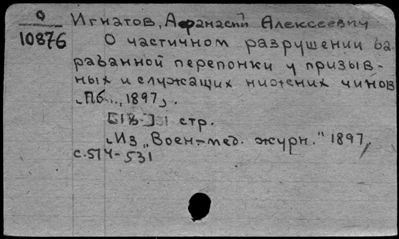 О
10876
Игнатов, Афанасий Алексеевич
О частичном разрушении ба-
рабанной перепонки у призыв-
ных и служащих нижних чинов
Пб., 1897.
стр.
Из „Воен-мед. журн." 1897,
с. 514-531